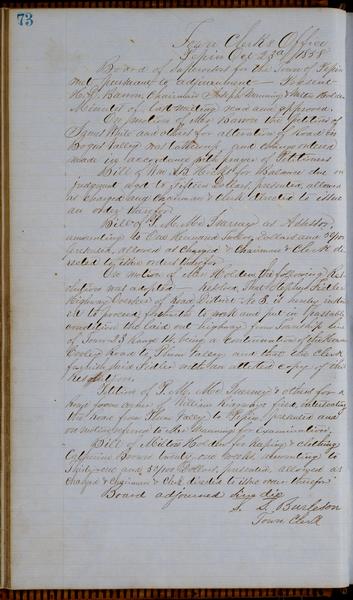 73
Town Clerk's Office
Pepin Oct 23d 1858
Board of Supervisors for the Town of Pepin
met pursuant to adjournment - Present
H. P. Barron, Chairman Manning & Miles Holden
Minutes of last meeting read and approved.
On motion of Mr Barron the Petition of
James White and others for alteration of Road in
Bogus Valley was taken up, and change ordered
made in accordance with prayer of Petitioners
Bill of Wm. B. for Balance due on
judgment agst to Fifteen Dollars, presented, allowed
as charged and Chairman & Clerk directed to issue
an order therefor
Bill of as Assessor,
amounting to One Hundred Dollars and /100
presented, allowed as charged & Chairman & Clerk di-
rected to issue orders therefor.
On motion of Mr Holden, the following Res-
olution was adopted - Resolved, That Stephen
Highway Overseer of Road District No 3. is hereby instruct-
ed to proceed forthwith to work and put in passable
condition the laid out highway from Township line
of Town 23 Range 14, being a continuation of the
Road to Plum Valley and that the Clerk
furnish said with an attested copy of this
Resolution.
Petition of & others for a
high way from center of Hicks' field, intersecting
the road from Plum Valley to Pepin, presented and
on motion referred to Mr Manning for examination.
Bill of Milton Holden for keeping & clothing
Catharine Brown twenty one weeks amounting to
Thirty one and 50/100 Dollars, presented, allowed as
charged & Chairman & Clerk directed to issue order therefor
Board adjourned sine die
S. L. Burleson
Town Clerk